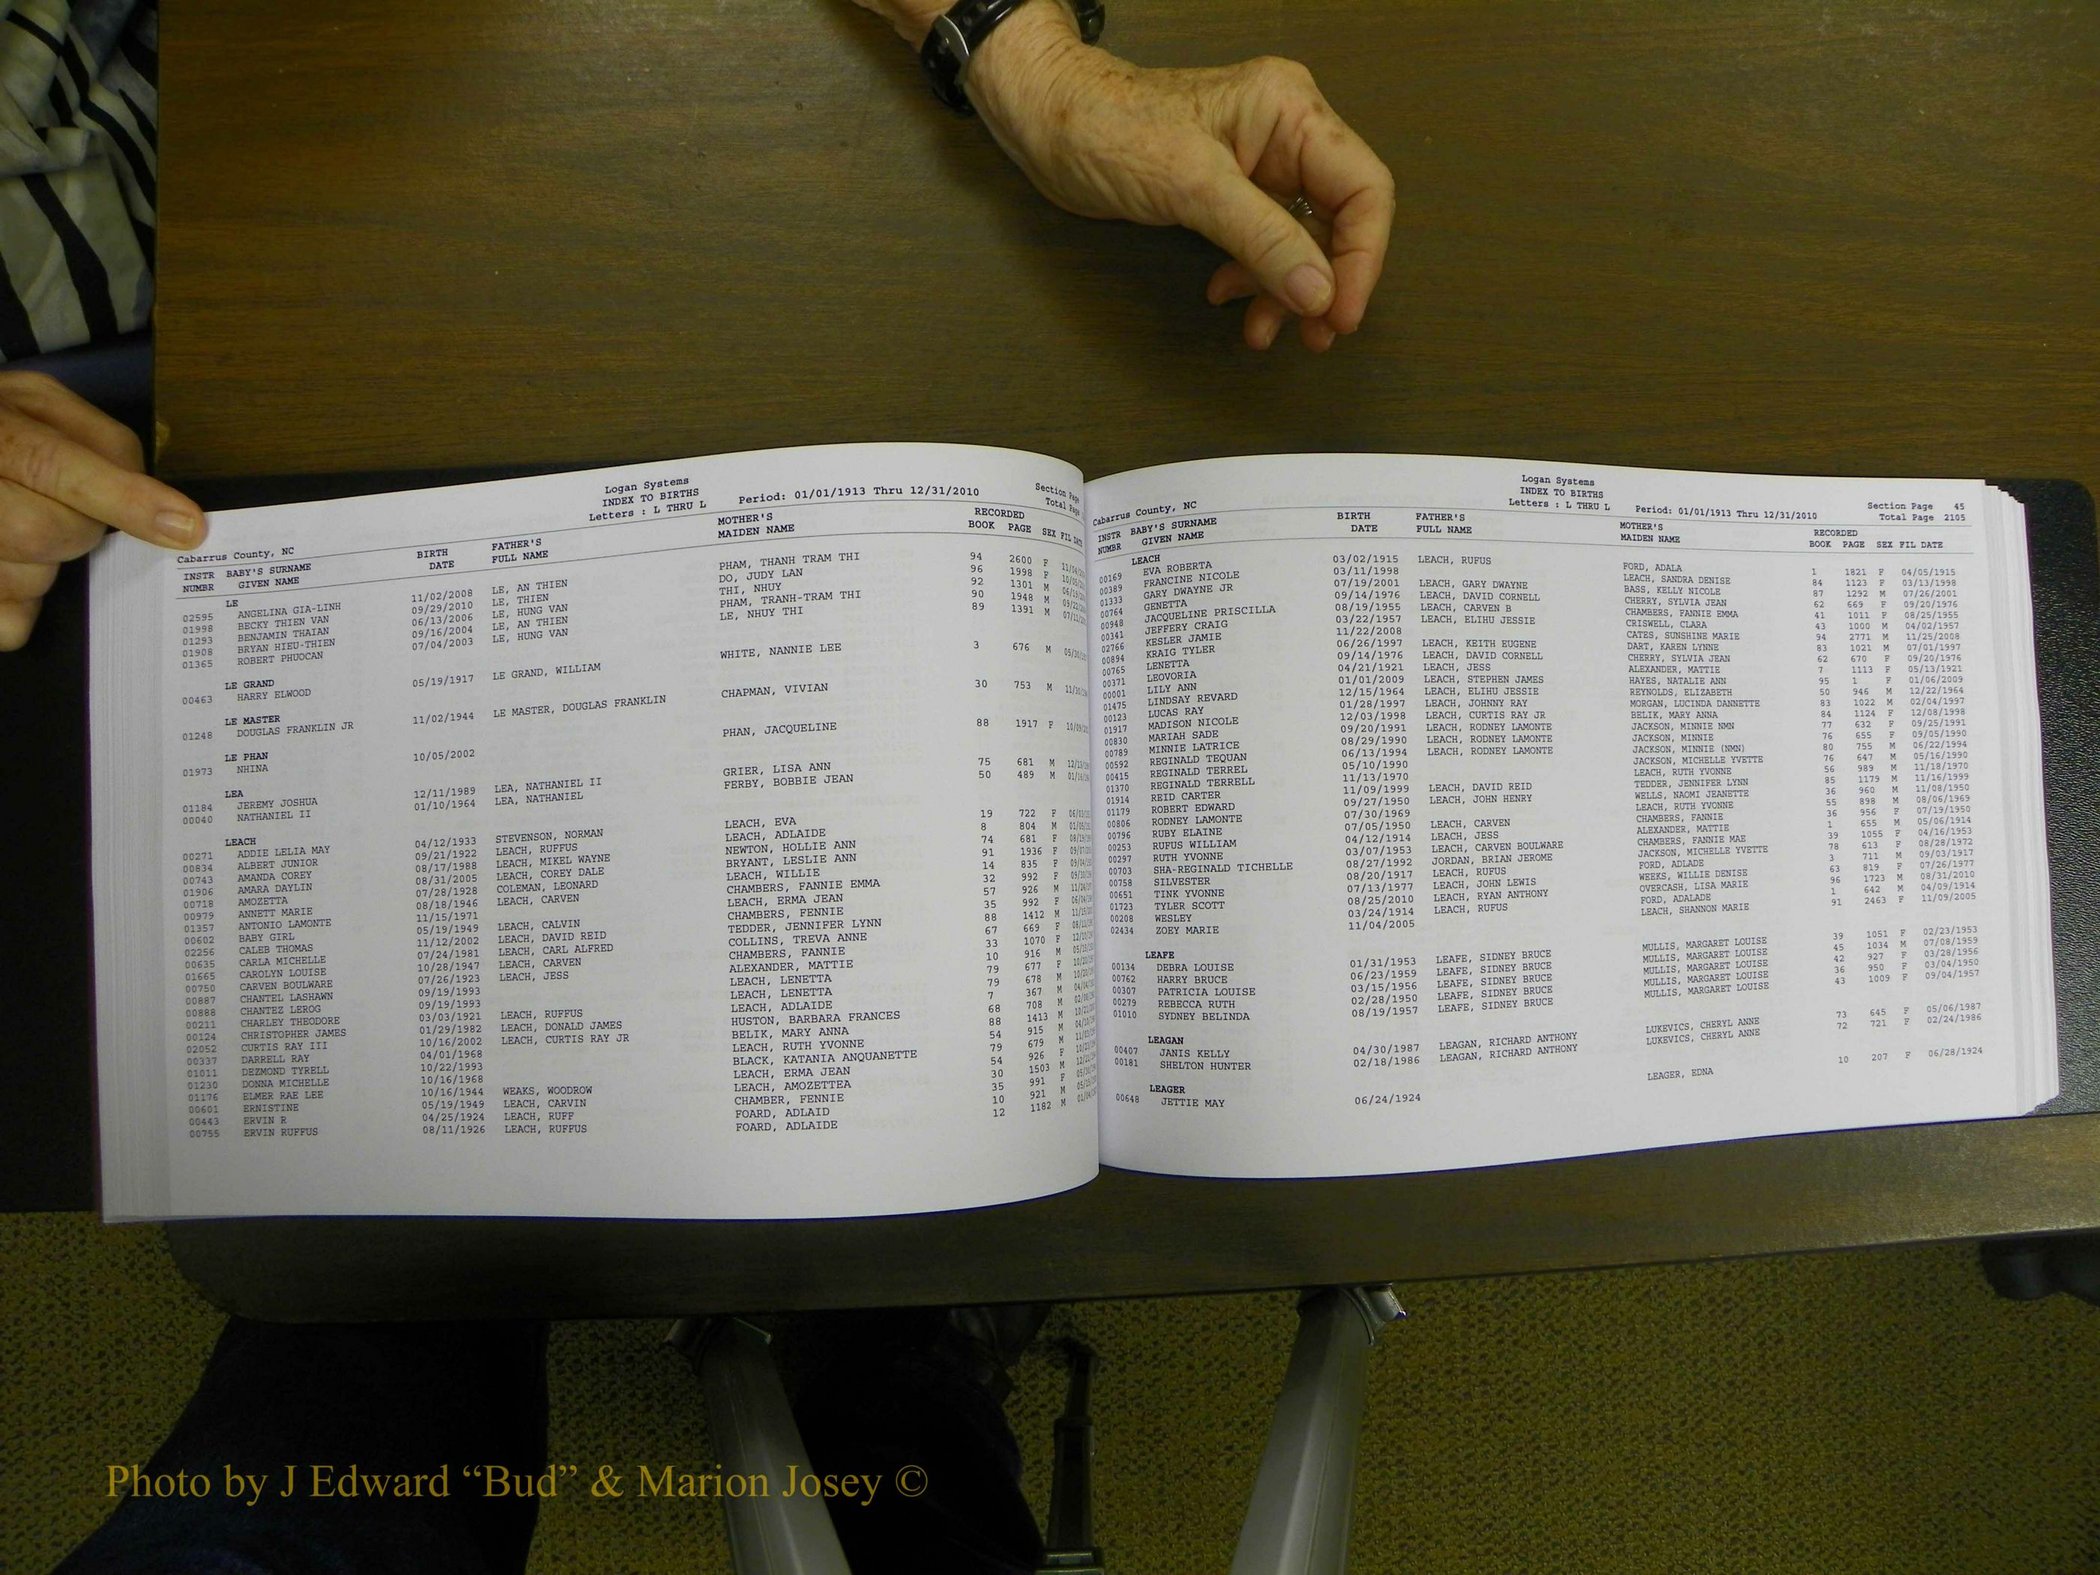 Logan Systems
INDEX TO BIRTHS
Letters : L THRU L
Period: 01/01/1913 Thru 12/31/2010
Section Page
Total Page
Cabarrus County, NC
INSTR BABY'S SURNAME BIRTH FATHER'S MOTHER'S RECORDED
NUMBR GIVEN NAME DATE FULL NAME MAIDEN NAME BOOK PAGE SEX FIL DATE
LE
02595 ANGELINA GIA-LINH 11/02/2008 LE, AN THIEN PHAM, THANH TRAM THI 94 2600 F
01998 BECKY THIEN VAN 09/29/2010 LE, THIEN DO, JUDY LAN 96 1998 F
01293 BENJAMIN THAIAN 06/13/2006 LE, HUNG VAN THI, NHUY 92 1301 M
01908 BRYAN HIEU-THIEN 09/16/2004 LE, AN THIEN PHAM, TRANH-TRAM THI 90 1948 M
01365 ROBERT PHUOCAN 07/04/2003 LE, HUNG VAN LE, NHUY THI 89 1391 M
LE GRAND
00463 HARRY ELWOOD 05/19/1917 LE GRAND, WILLIAM WHITE, NANNIE LEE 3 676 M
LE MASTER
01248 DOUGLAS FRANKLIN JR 11/02/1944 LE MASTER, DOUGLAS FRANKLIN CHAPMAN, VIVIAN 30 753 M
LE PHAN
01973 NHINA 10/05/2002 PHAN, JACQUELINE 88 1917 F
LEA
01184 JEREMY JOSHUA 12/11/1989 LEA, NATHANIEL II GRIER, LISA ANN 75 681 M
00040 NATHANIEL II 01/10/1964 LEA, NATHANIEL FERBY, BOBBIE JEAN 50 489 M
LEACH
00271 ADDIE LELIA MAY 04/12/1933 STEVENSON, NORMAN LEACH, EVA 19 722 F
00834 ALBERT JUNIOR 09/21/1922 LEACH, RUFFUS LEACH, ADLAIDE 8 804 M
00743 AMANDA COREY 08/17/1988 LEACH, MIKEL WAYNE NEWTON, HOLLIE ANN 74 681 F
01906 AMARA DAYLIN 08/31/2005 LEACH, COREY DALE BRYANT, LESLIE ANN 91 1936 F
00718 AMOZETTA 07/28/1928 COLEMAN, LEONARD LEACH, WILLIE 14 835 F
00979 ANNETT MARIE 08/18/1946 LEACH, CARVEN CHAMBERS, FANNIE EMMA 32 992 F
01357 ANTONIO LAMONTE 11/15/1971 LEACH, ERMA JEAN 57 926 M
00602 BABY GIRL 05/19/1949 LEACH, CALVIN CHAMBERS, FENNIE 35 992 F
02256 CALEB THOMAS 11/12/2002 LEACH, DAVID REID TEDDER, JENNIFER LYNN 88 1412 M
00635 CARLA MICHELLE 07/24/1981 LEACH, CARL ALFRED COLLINS, TREVA ANNE 67 669 F
01665 CAROLYN LOUISE 10/28/1947 LEACH, CARVEN CHAMBERS, FANNIE 33 1070 F
00750 CARVEN BOULWARE 07/26/1923 LEACH, JESS ALEXANDER, MATTIE 10 916 M
00887 CHANTEL LASHAWN 09/19/1993 LEACH, LENETTA 79 677 F
00888 CHANTEZ LEROG 09/19/1993 LEACH, LENETTA 79 678 M
00211 CHARLEY THEODORE 03/03/1921 LEACH, RUFFUS LEACH, ADLAIDE 7 367 M
00124 CHRISTOPHER JAMES 01/29/1982 LEACH, DONALD JAMES HUSTON, BARBARA FRANCES 68 708 M
02052 CURTIS RAY III 10/16/2002 LEACH, CURTIS RAY JR BELIK, MARY ANNA 88 1413 M
00337 DARRELL RAY 04/01/1968 LEACH, RUTH YVONNE 54 915 M
01011 DEZMOND TYRELL 10/22/1993 BLACK, KATANIA ANQUANETTE 79 679 M
01230 DONNA MICHELLE 10/16/1968 LEACH, ERMA JEAN 54 926 F
01176 ELMER RAE LEE 10/16/1944 WEAKS, WOODROW LEACH, AMOZETTEA 30 1503 M
00601 ERNISTINE 05/19/1949 LEACH, CARVIN CHAMBER, FENNIE 35 991 F
00443 ERVIN R 04/25/1924 LEACH, RUFF FOARD, ADLAID 10 921 M
00755 ERVIN RUFFUS 08/11/1926 LEACH, RUFFUS FOARD, ADLAIDE 12 1182 M
Logan Systems
INDEX TO BIRTHS
Letters : L THRU L
Period: 01/01/1913 Thru 12/31/2010
Section Page 45
Total Page 2105
Cabarrus County, NC
INSTR BABY'S SURNAME BIRTH FATHER'S MOTHER'S RECORDED
NUMBR GIVEN NAME DATE FULL NAME MAIDEN NAME BOOK PAGE SEX FIL DATE
LEACH
00169 EVA ROBERTA 03/02/1915 LEACH, RUFUS FORD, ADALA 1 1821 F 04/05/1915
00389 FRANCINE NICOLE 03/11/1998 LEACH, SANDRA DENISE 84 1123 F 03/13/1998
01333 GARY DWAYNE JR 07/19/2001 LEACH, GARY DWAYNE BASS, KELLY NICOLE 87 1292 M 07/26/2001
00764 GENETTA 09/14/1976 LEACH, DAVID CORNELL CHERRY, SYLVIA JEAN 62 669 F 09/20/1976
00948 JACQUELINE PRISCILLA 08/19/1955 LEACH, CARVEN B CHAMBERS, FANNIE EMMA 41 1011 F 08/25/1955
00341 JEFFERY CRAIG 03/22/1957 LEACH, ELIHU JESSIE CRISWELL, CLARA 43 1000 M 04/02/1957
02766 KESLER JAMIE 11/22/2008 CATES, SUNSHINE MARIE 94 2771 M 11/25/2008
00894 KRAIG TYLER 06/26/1997 LEACH, KEITH EUGENE DART, KAREN LYNNE 83 1021 M 07/01/1997
00765 LENETTA 09/14/1976 LEACH, DAVID CORNELL CHERRY, SYLVIA JEAN 62 670 F 09/20/1976
00371 LEOVORIA 04/21/1921 LEACH, JESS ALEXANDER, MATTIE 7 1113 F 05/13/1921
00001 LILY ANN 01/01/2009 LEACH, STEPHEN JAMES HAYES, NATALIE ANN 95 1 F 01/06/2009
01475 LINDSAY REVARD 12/15/1964 LEACH, ELIHU JESSIE REYNOLDS, ELIZABETH 50 946 M 12/22/1964
00123 LUCAS RAY 01/28/1997 LEACH, JOHNNY RAY MORGAN, LUCINDA DANNETTE 83 1022 M 02/04/1997
01917 MADISON NICOLE 12/03/1998 LEACH, CURTIS RAY JR BELIK, MARY ANNA 84 1124 F 12/08/1998
00830 MARIAH SADE 09/20/1991 LEACH, RODNEY LAMONTE JACKSON, MINNIE NMN 77 632 F 09/25/1991
00789 MINNIE LATRICE 08/29/1990 LEACH, RODNEY LAMONTE JACKSON, MINNIE 76 655 F 09/05/1990
00592 REGINALD TEQUAN 06/13/1994 LEACH, RODNEY LAMONTE JACKSON, MINNIE (NMN) 80 755 M 06/22/1994
00415 REGINALD TERREL 05/10/1990 JACKSON, MICHELLE YVETTE 76 647 M 05/16/1990
01370 REGINALD TERRELL 11/13/1970 LEACH, RUTH YVONNE 56 989 M 11/18/1970
01914 REID CARTER 11/09/1999 LEACH, DAVID REID TEDDER, JENNIFER LYNN 85 1179 M 11/16/1999
01179 ROBERT EDWARD 09/27/1950 LEACH, JOHN HENRY WELLS, NAOMI JEANETTE 36 960 M 11/08/1950
00806 RODNEY LAMONTE 07/30/1969 LEACH, RUTH YVONNE 55 898 M 08/06/1969
00796 RUBY ELAINE 07/05/1950 LEACH, CARVEN CHAMBERS, FANNIE 36 956 F 07/19/1950
00253 RUFUS WILLIAM 04/12/1914 LEACH, JESS ALEXANDER, MATTIE 1 655 M 05/06/1914
00297 RUTH YVONNE 03/07/1953 LEACH, CARVEN BOULWARE CHAMBERS, FANNIE MAE 39 1055 F 04/16/1953
00703 SHA-REGINALD TICHELLE 08/27/1992 JORDAN, BRIAN JEROME JACKSON, MICHELLE YVETTE 78 613 F 08/28/1972
00758 SILVESTER 08/20/1917 LEACH, RUFUS FORD, ADLADE 3 711 M 09/03/1917
00651 TINK YVONNE 07/13/1977 LEACH, JOHN LEWIS WEEKS, WILLIE DENISE 63 819 F 07/26/1977
01723 TYLER SCOTT 08/25/2010 LEACH, RYAN ANTHONY OVERCASH, LISA MARIE 96 1723 M 08/31/2010
00208 WESLEY 03/24/1914 LEACH, RUFUS FORD, ADALADE 1 642 M 04/09/1914
02434 ZOEY MARIE 11/04/2005 LEACH, SHANNON MARIE 91 2463 F 11/09/2005
LEAFE
00134 DEBRA LOUISE 01/31/1953 LEAFE, SIDNEY BRUCE MULLIS, MARGARET LOUISE 39 1051 F 02/23/1953
00762 HARRY BRUCE 06/23/1959 LEAFE, SIDNEY BRUCE MULLIS, MARGARET LOUISE 45 1034 M 07/08/1959
00307 PATRICIA LOUISE 03/15/1956 LEAFE, SIDNEY BRUCE MULLIS, MARGARET LOUISE 42 927 F 03/28/1956
00279 REBECCA RUTH 02/28/1950 LEAFE, SIDNEY BRUCE MULLIS, MARGARET LOUISE 36 950 F 03/04/1950
01010 SYDNEY BELINDA 08/19/1957 LEAFE, SIDNEY BRUCE MULLIS, MARGARET LOUISE 43 1009 F 09/04/1957
LEAGAN
00407 JANIS KELLY 04/30/1987 LEAGAN, RICHARD ANTHONY LUKEVICS, CHERYL ANNE 73 645 F 05/06/1987
00181 SHELTON HUNTER 02/18/1986 LEAGAN, RICHARD ANTHONY LUKEVICS, CHERYL ANNE 72 721 F 02/24/1986
LEAGER
00648 JETTIE MAY 06/24/1924 LEAGER, EDNA 10 207 F 06/28/1924
Photo by J Edward “Bud” & Marion Josey ©